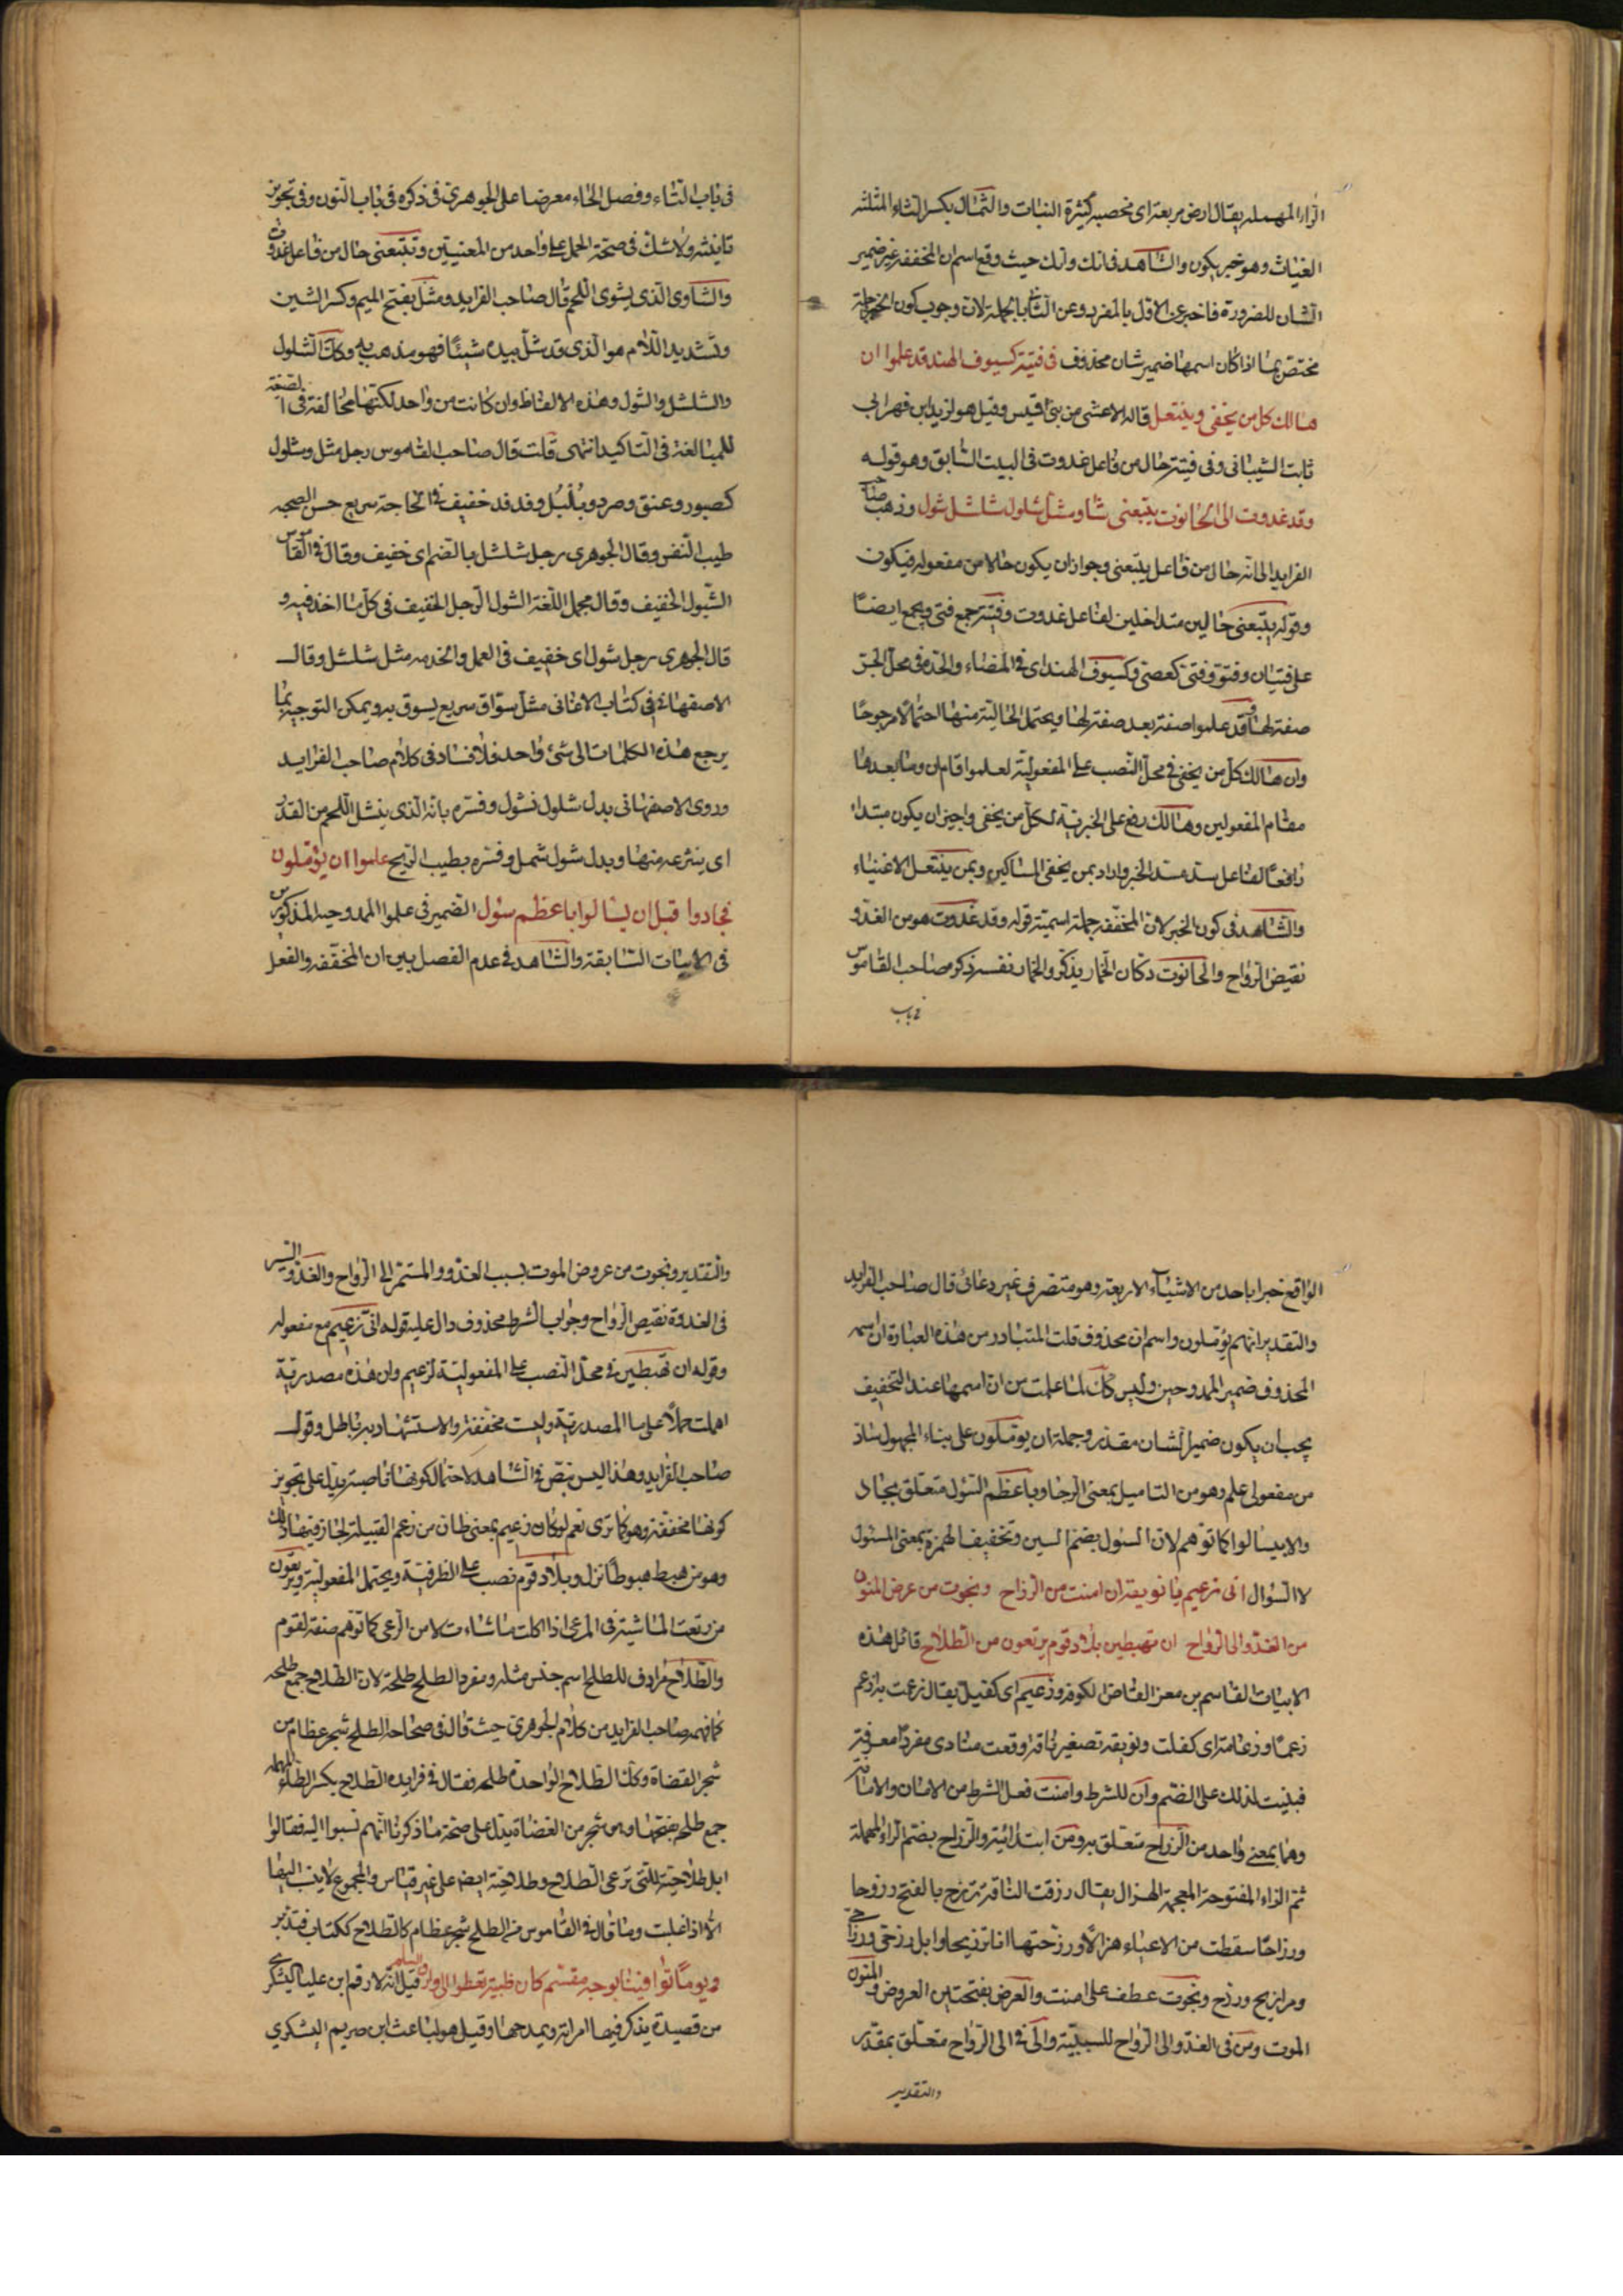 الراء المهملة يقال ارض مربعة اى مخصبة كثيرة النبات والثمال بكسر الثاء المثلثة
الغياث وهو خبر يكون والشاهد فى انك وانك حيث وقع اسم ان المخففة غير ضمير
الشان للضرورة فاخبر عن الاول بالمفرد وعن الثانى بالجملة لان وجوب كون الخبر جملة
مختص بما اذا كان اسمها ضمير شان محذوف فى فتية كسيوف الهند قد علموا ان
هالك كل من يحفى وينتعل قاله الاعشى من بنى قيس وقيل هو لزيد ابن فهر ابى
ثابت الشيبانى وفى فتية حال من فاعل غدوت فى البيت السابق وهو قوله
وقد غدوت الى الحانوت يتبعنى شاو مشل شلول شلشل شول وذهب صاحب
الفرايد الى انه حال من فاعل يتبعنى وجواز ان يكون حالا من مفعوله فيكون
وقوله يتبعنى حالين متداخلين لفاعل غدوت وفتية جمع فتى ويجمع ايضا
على فتيان وفتوة وفتى كعصى وكسيوف الهند اى فى المضاء والحدة فى محل الجر
صفة لها وقد علموا صفة بعد صفة لها ويحتمل الحالية منها احتمالا مرجوحا
وان هالك كل من يحفى فى محل النصب على المفعولية لعلموا قام ان وما بعدها
مقام المفعولين وهالك رفع على الخبرية لكل من يحفى واجيز ان يكون مبتداء
رافعا لفاعل سد مسد الخبر واراد بمن يحفى المساكين وبمن ينتعل الاغنياء
والشاهد فى كون الخبر لان المخففة جملة اسمية قوله وقد غدوت هو من الغدو
نقيض الرواح والحانوت دكان الخمار يذكر والخمار نفسه ذكره صاحب القاموس
فى باب
فى باب التاء وفصل الحاء معرضا على الجوهرى فى ذكره فى باب النون وفى تجويز
تانيثه ولا شك فى صحة الحمل على واحد من المعنيين ويتبعنى حال من فاعل غدوت
والشاوى الذى يشوى اللحم قال صاحب الفرايد ومشل بفتح الميم وكسر الشين
وتشديد اللام هو الذى قد شل بيده شيئا فهو يذهب به وكك الشلول
والشلشل والشول وهذه الالفاظ وان كانت من واحد لكنها مخالفة فى الصيغة
للمبالغة فى التاكيد انتهى قلت قال صاحب القاموس رجل مشل وشلول
كصبور وعنق وصرد وبلبل وفدفد خفيف فى الحاجة سريع حسن الصحبة
طيب النفس وقال الجوهرى رجل شلشل بالضم اى خفيف وقال فى القاموس
الشول الخفيف وقال مجمل اللغة الشول الرجل الخفيف فى كل ما اخذ فيه و
قال الجوهرى رجل شول اى خفيف فى العمل والخدمة مثل شلشل وقال
الاصفهانى فى كتاب الاغانى مشل سواق سريع يسوق به ويمكن التوجيه بما
يرجع هذه الكلمات الى شئ واحد فلا فساد فى كلام صاحب الفرايد
وروى الاصفهانى بدل شلول نشول وفسره بانه الذى ينشل اللحم من القدر
اى ينزعه منها وبدل شول شمل وفسره بطيب الريح علموا ان يؤملون
فجادوا قبل ان يسالوا باعظم سول الضمير فى علموا الممدوحيه المذكورين
فى الابيات السابقة والشاهد فى عدم الفصل بين ان المخففة والفعل
الواقع خبرا باحد من الاشياء الاربعة وهو متصرف غير دعائى قال صاحب الفرايد
والتقدير انهم يؤملون واسم ان محذوف قلت المتبادر من هذه العبارة ان اسمه
المحذوف ضمير الممدوحين وليس كك لما علمت من ان اسمها عند التخفيف
يجب ان يكون ضمير الشان مقدر وجملة ان يؤملون على بناء المجهول ساد
من مفعولى علم وهو من التاميل بمعنى الرجا وباعظم السول متعلق بجاد
والا بيسالوا كما توهم لان السول بضم السين وتخفيف الهمزة بمعنى المسئول
لا السؤال انى زعيم يا نويقة ان امنت من الرزاح ونجوت من عرض المنون
من الغدو الى الرواح ان تهبطين بلاد قوم يرتعون من الطلاح قائل هذه
الابيات القاسم بن معن القاضى الكوفة وزعيم اى كفيل يقال زعمت به ازعم
زعما وزعامة اى كفلت ونويقة تصغير ناقة وقعت منادى مفردا معرفة
فبنيت لذلك على الضم وان للشرط وامنت فعل الشرط من الامان والامانة
وهما بمعنى واحد من الرزاح متعلق به ومن ابتدائية والرزاح بضم الراء المهملة
ثم الزاء المفتوحة المعجمة الهزال يقال رزحت الناقة ترزح بالفتح رزوحا
ورزاحا سقطت من الاعياء هزالا ورزحتها انا ترزيحا وابل رزحى ورزاحى
ومرازيح ورزح ونجوت عطف على امنت والعرض بفتحتين العروض والمنون
الموت ومن فى الغدو الى الرواح للسببية والى فى الى الرواح متعلق بمقدر
والتقدير
والتقدير ونجوت من عروض الموت بسبب الغدو والمستمر الى الرواح والغدو السير
فى الغدوة نقيض الرواح وجواب الشرط محذوف دال عليه قوله انى زعيم مع مفعوله
وقوله ان تهبطين فى محل النصب على المفعولية لزعيم وان هذه مصدرية
اهملت حملا على ما المصدرية وليست مخففة والاستشهاد به باطل وقول
صاحب الفرايد وهذا ليس بنص فى الشاهد لاحتمال كونها ناصبة يدل على تجويز
كونها مخففة وهو كما ترى نعم لو كان زعيم بمعنى ظان من زعم القبيلة لجاز فيها ذلك
وهو من هبط هبوطا نزل وبلاد قوم نصب على الظرفية ويحتمل المفعولية ويرتعون
من رتعت الماشية فى المرعى اذا اكلت ما شاءت لا من الرعى كما توهم صفة لقوم
والطلاح مرادف للطلح اسم جنس مثله ومفرد الطلح طلحة لان الطلاح جمع طلحه
كما فهمه صاحب الفرايد من كلام الجوهرى حيث قال فى صحاحه الطلح شجر عظام من
شجر العضاة وكك الطلاح الواحدة طلحه فقال فى فرايده الطلاح بكسر الطاء المهملة
جمع طلحه بفتحها وهى شجر من العضاة يدل على صحة ما ذكرنا انهم نسبوا اليه فقالوا
ابل طلاحية للتى ترعى الطلاح وطلاحية ايضا على غير قياس والمجموع لا ينسب اليها
الا اذا غلبت وما قال فى القاموس من الطلح شجر عظام كالطلاح ككتاب فتدبر
ويوما توافينا بوجه مقسم كان ظبية تعطو الى وارق السلم قيل انه لارقم ابن علباء اليشكرى
من قصيدة يذكر فيها امراته ويمدحها وقيل هو لباعث ابن صريم اليشكري